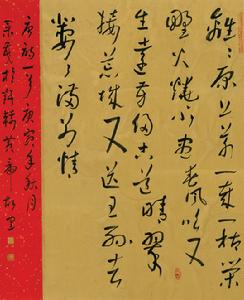 離〻原上草一歲一枯榮
野火燒不盡春風吹又
生遠芳侵古道晴翠
接荒城又送王孫去
萋〻滿別情
唐詩一首庚寅年秋月
於軒轅黃帝故里